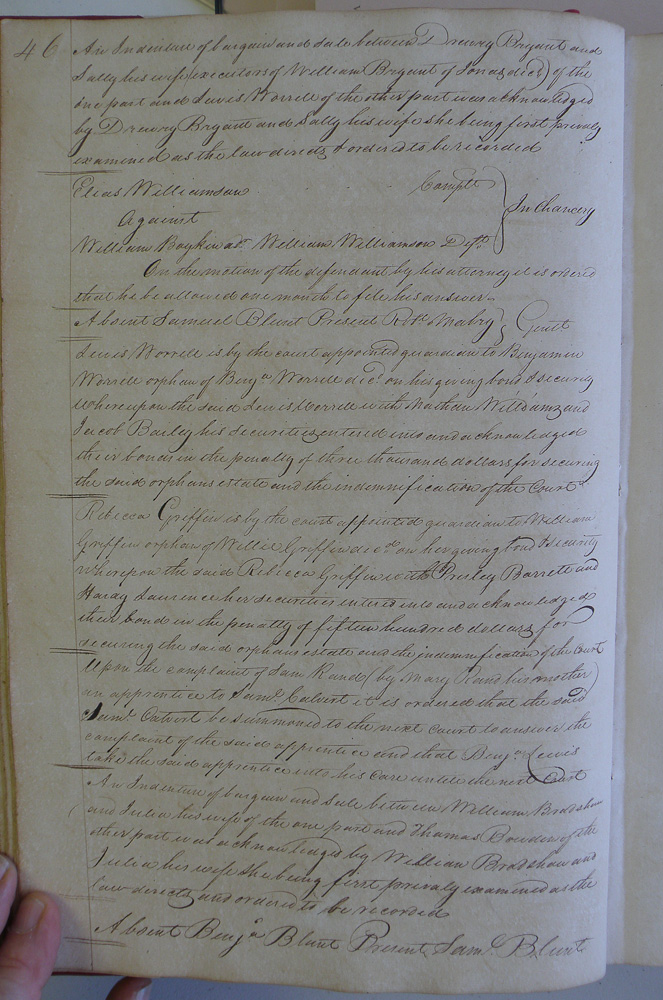 46
An Indenture of bargain and sale between Drewry Bryant and
Sally his wife (executors of William Bryant of Jonas decd) of the
one part and Lewis Worrell of the other part was acknowledged
by Drewry Bryant and Sally his wife she being first privaly
examined as the law directs & ordered to be recorded
Elias Williamson Complt
Against In Chancery
William Boykin adr William Williamson Deft
On the motion of the defendant by his attorney it is ordered
that he be allowed one month to file his answer
Absent Samuel Blunt Present Robt Mabry Gentt
Lewis Worrell is by the court appointed guardian to Benjamin
Worrell orphan of Benja Worrell decd on his giving bond & security
Whereupon the said Lewis Worrell with Nathan Williams and
Jacob Barley his securities entered into and acknowledged
their bond in the penalty of three thousand dollars for securing
the said orphans estate and the indemnification of the Court
Rebecca Griffin is by the court appointed guardian to William
Griffin orphan of Willie Griffin decd on her giving bond & security
whereupon the said Rebecca Griffin with Presley Barrett and
Hardy Laurence her securities entered into and acknowledged
their bond in the penalty of fifteen hundred dollars for
securing the said orphans estate and the indemnification of the Court
Upon the complaint of Sam Rand (by Mary Rand his mother)
an apprentice to Saml Calvert it is ordered that the said
Saml Calvert be summoned to the next Court to answer the
complaint of the said apprentice and that Benja Lewis
take the said apprentice into his care untill the next Court
An Indenture of bargain and sale between William Bradshaw
and Julia his wife of the one part and Thomas Bowden of the
other part was acknowledged by William Bradshaw and
Julia his wife she being first privaly examined as the
law directs and ordered to be recorded
Absent Benja Blunt Present Saml Blunt